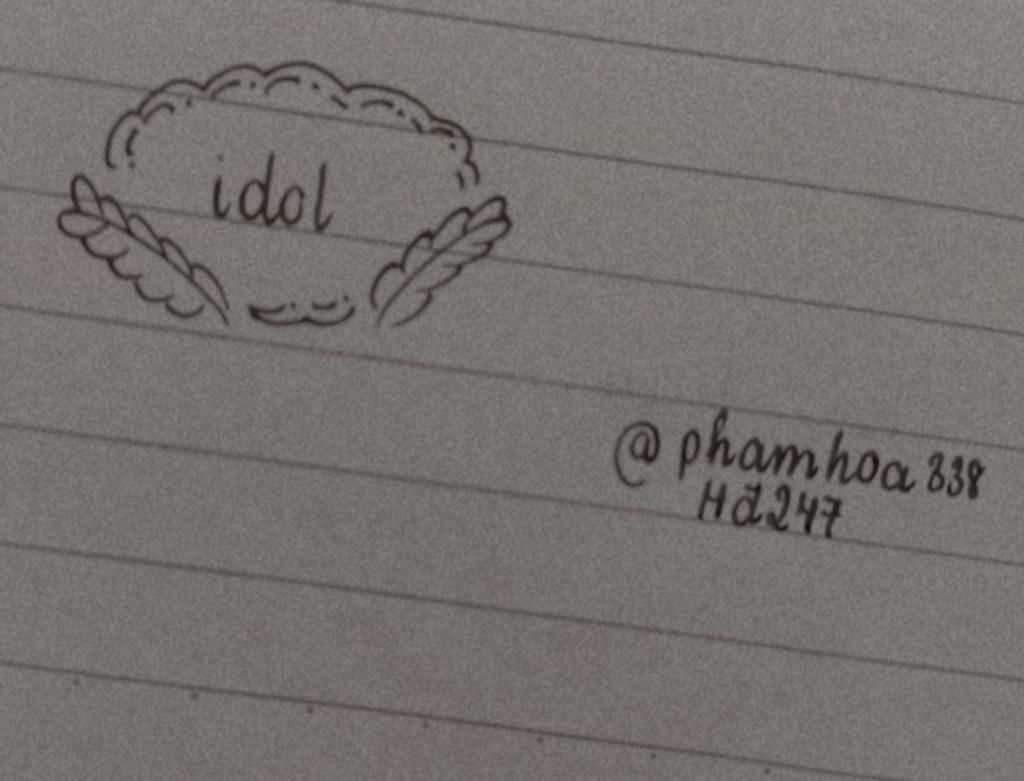 idol
@phamhoa338
Hđ247